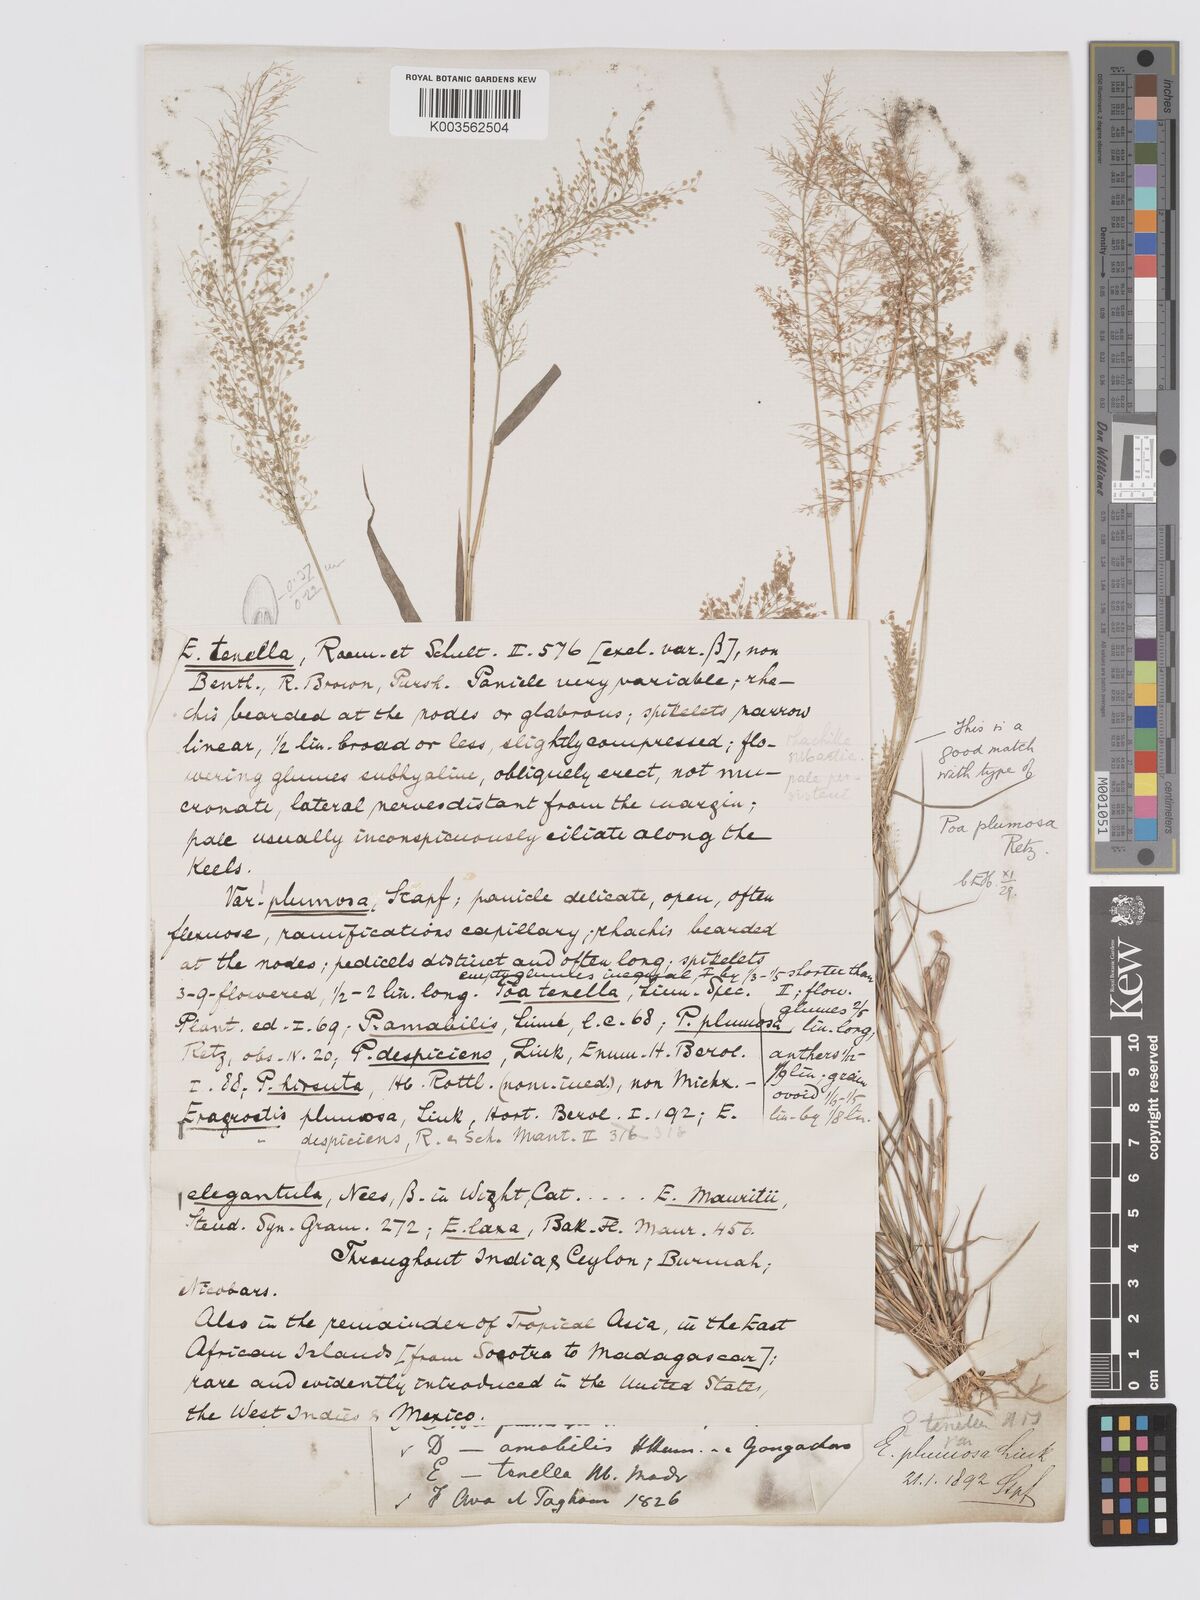 ROYAL BOTANIC GARDENS KEW
K003562504
0.37
0.22
E. tenella, Roem. et Schult. II. 576 [excl. var. β], non
Benth., R. Brown, Pursh. Panicle very variable; rha-
chis bearded at the nodes or glabrous; spikelets narrow
linear, 1/2 lin. broad or less, slightly compressed; flo-
wering glumes subhyaline, obliquely erect, not mu-
cronate, lateral nerves distant from the margin;
pale usually inconspicuously ciliate along the
keels.
rhachilla
subartic.
pale per-
sistent
Var. plumosa, Stapf; panicle delicate, open, often
flexuose, ramifications capillary; rhachis bearded
at the nodes; pedicels distinct and often long; spikelets
empty glumes inequal, I by 1/3-1/5 shorter than
3-9-flowered, 1/2-2 lin. long. Poa tenella, Linn. Spec.
II; flow.
glumes 2/5
lin. long,
anthers 1/12-
1/9 lin; grain
ovoid 1/6-1/5
lin. by 1/8 lin.
Plant. ed. I. 69; P. amabilis, Linné, l.c. 68; P. plumosa
Retz, obs. IV. 20; P. despiciens, Link, Enum. H. Berol.
I. 88; P. hirsuta, Hb. Rottl. (nom. ined.), non Michx. -
Eragrostis plumosa, Link, Hort. Berol. I. 192; E.
" despiciens, R. & Sch. Mant. II 316 318
elegantula, Nees, β. in Wight, Cat. . . . . E. Mauritii,
Steud. Syn. Gram. 272; E. laxa, Bak. Fl. Maur. 456.
Throughout India & Ceylon; Burmah;
Nicobars.
Also in the remainder of Tropical Asia, in the East
African Islands [from Socotra to Madagascar];
rare and evidently introduced in the United States,
the West Indies & Mexico.
✓ D — amabilis HHam. Gongachora
E — tenella Hb. Madr
✓ F Ava Taghom 1826
This is a
good match
with type of
Poa plumosa
Retz.
C.E.H. XI
29.
tenella
var
E. plumosa Link
21.1.1892 Stpf
inches
centimeters
Density
Don Williams
M001051
Royal Botanic Gardens
Kew
0 1 2 3 4 5 6 7 8 9 10
cm